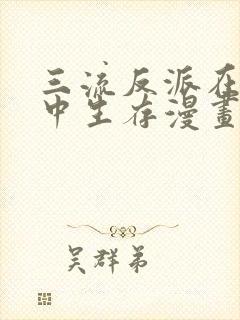 三流反派在
中生存漫畫
吴群弟